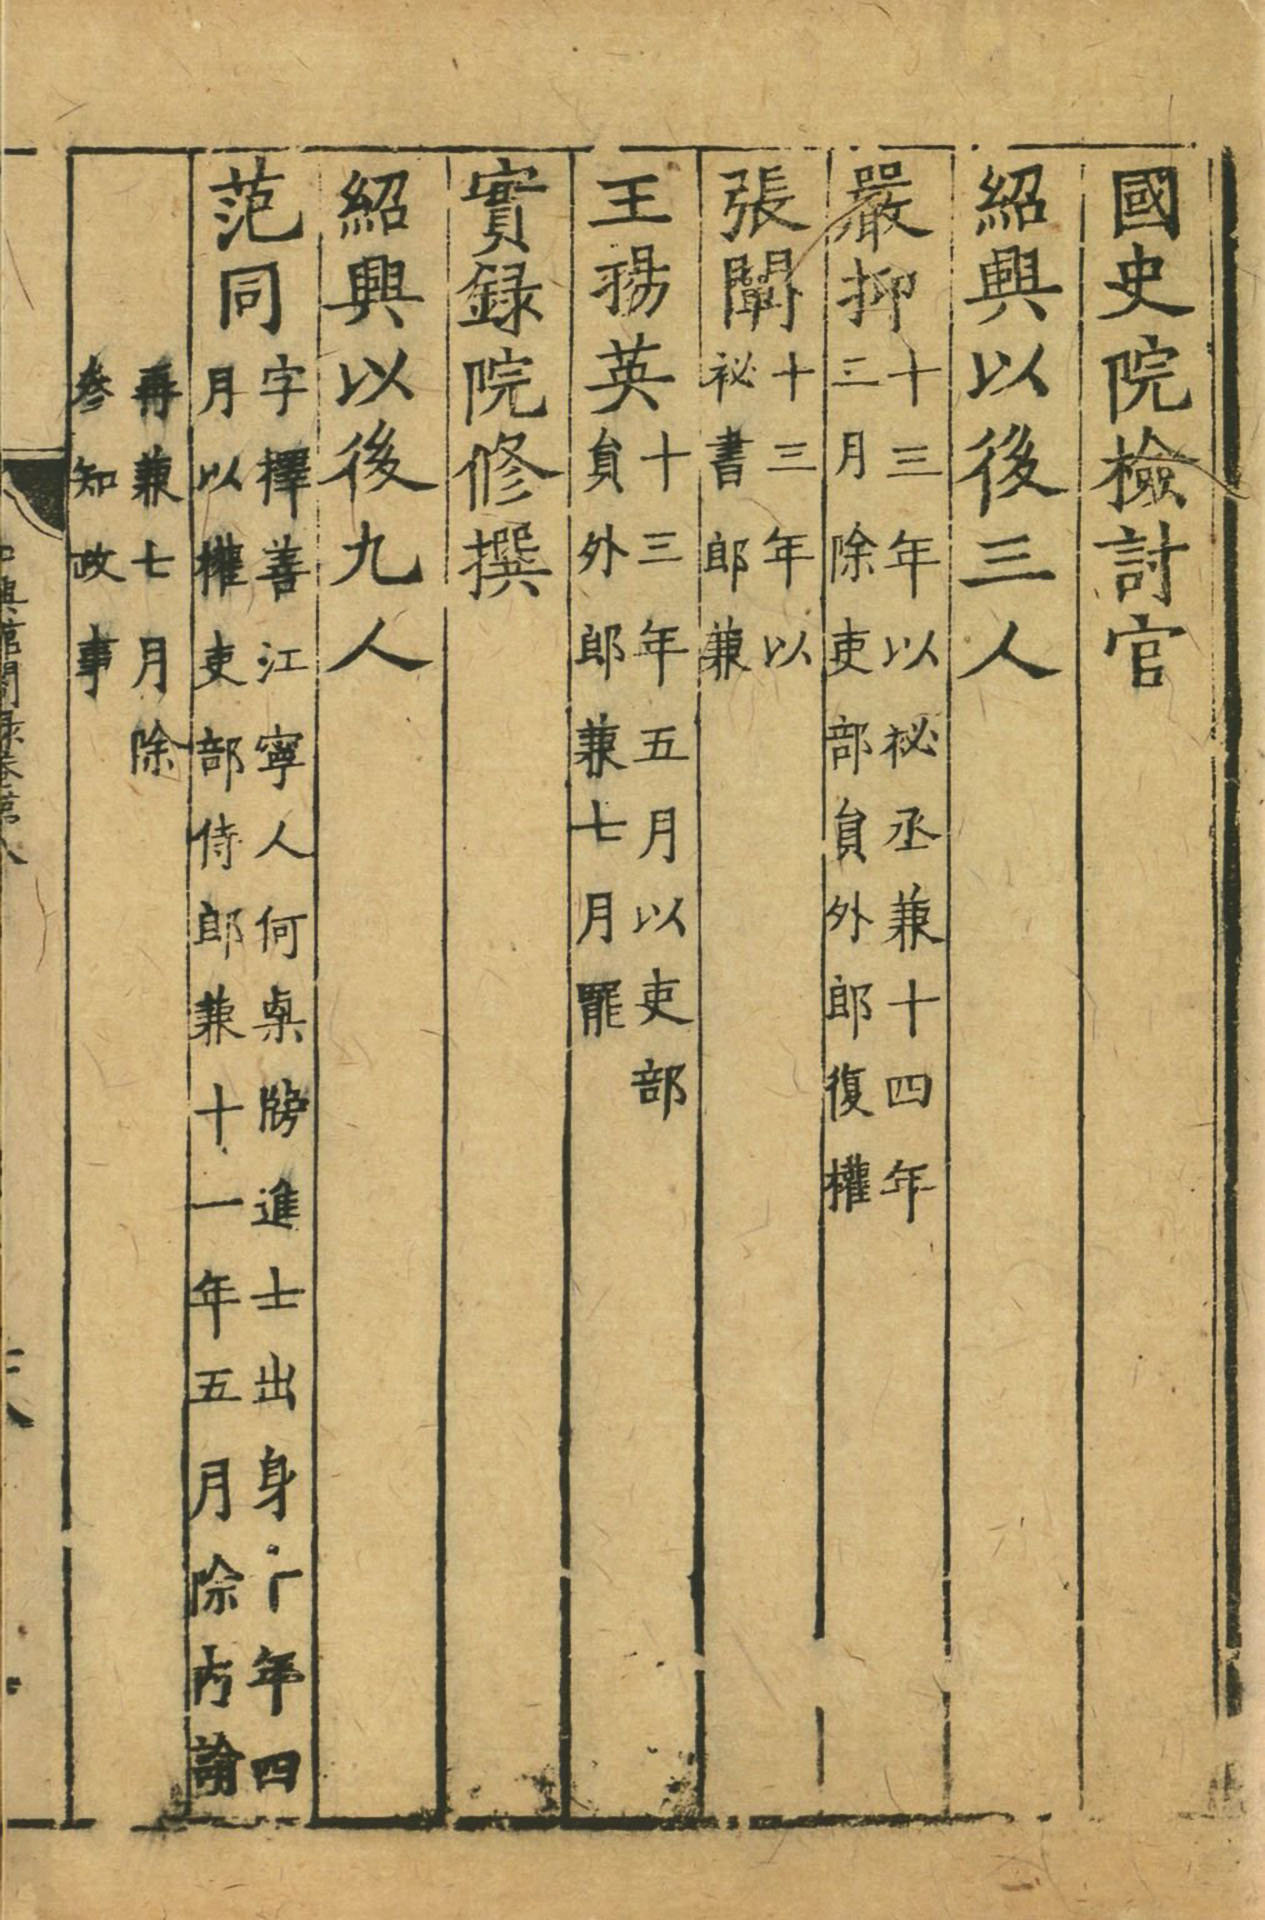 國史院檢討官
紹興以後三人
嚴抑十三年以祕丞兼十四年
三月除吏部員外郎復權
張闡十三年以
祕書郎兼
王揚英十三年五月以吏部
員外郎兼七月罷
實錄院修撰
紹興以後九人
范同字擇善江寧人何㮚牓進士出身十年四
月以權吏部侍郎兼十一年五月除內翰
再兼七月除
參知政事